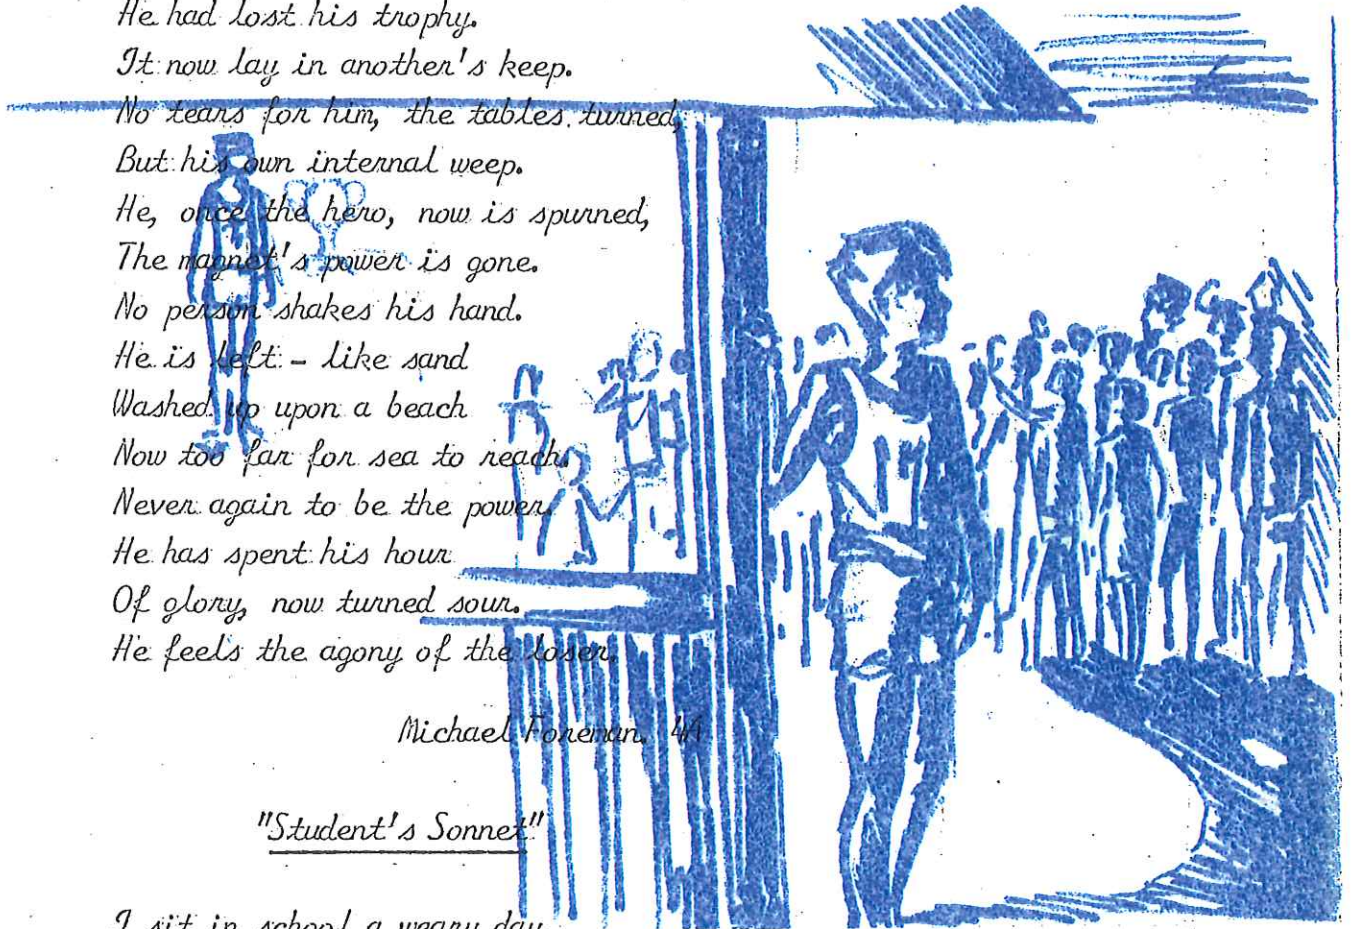 He had lost his trophy.
It now lay in another's keep.
No tears for him, the tables turned,
But his own internal weep.
He, once the hero, now is spurned,
The magnet's power is gone.
No person shakes his hand.
He is left - like sand
Washed up upon a beach
Now too far for sea to reach.
Never again to be the power.
He has spent his hour
Of glory, now turned sour.
He feels the agony of the loser.
Michael Foreman. 4A
"Student's Sonnet"
I sit in school a weary day